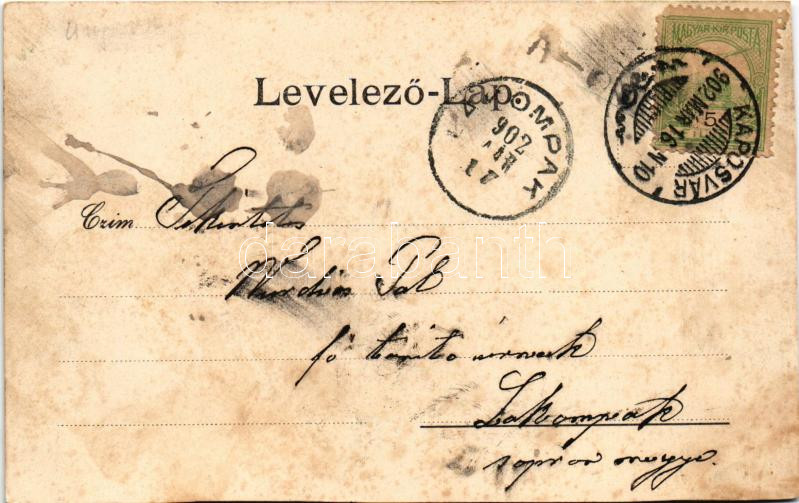 MAGYAR KIR. POSTA
5
KAPOSVÁR
902 MÁR 16 N 10
Levelező-Lap.
LAKOMPAK
902
MÁR
17
Czim Tekintetes
Pál
fő tanító úrnak
Lakompak
sopron megye.
darabanth